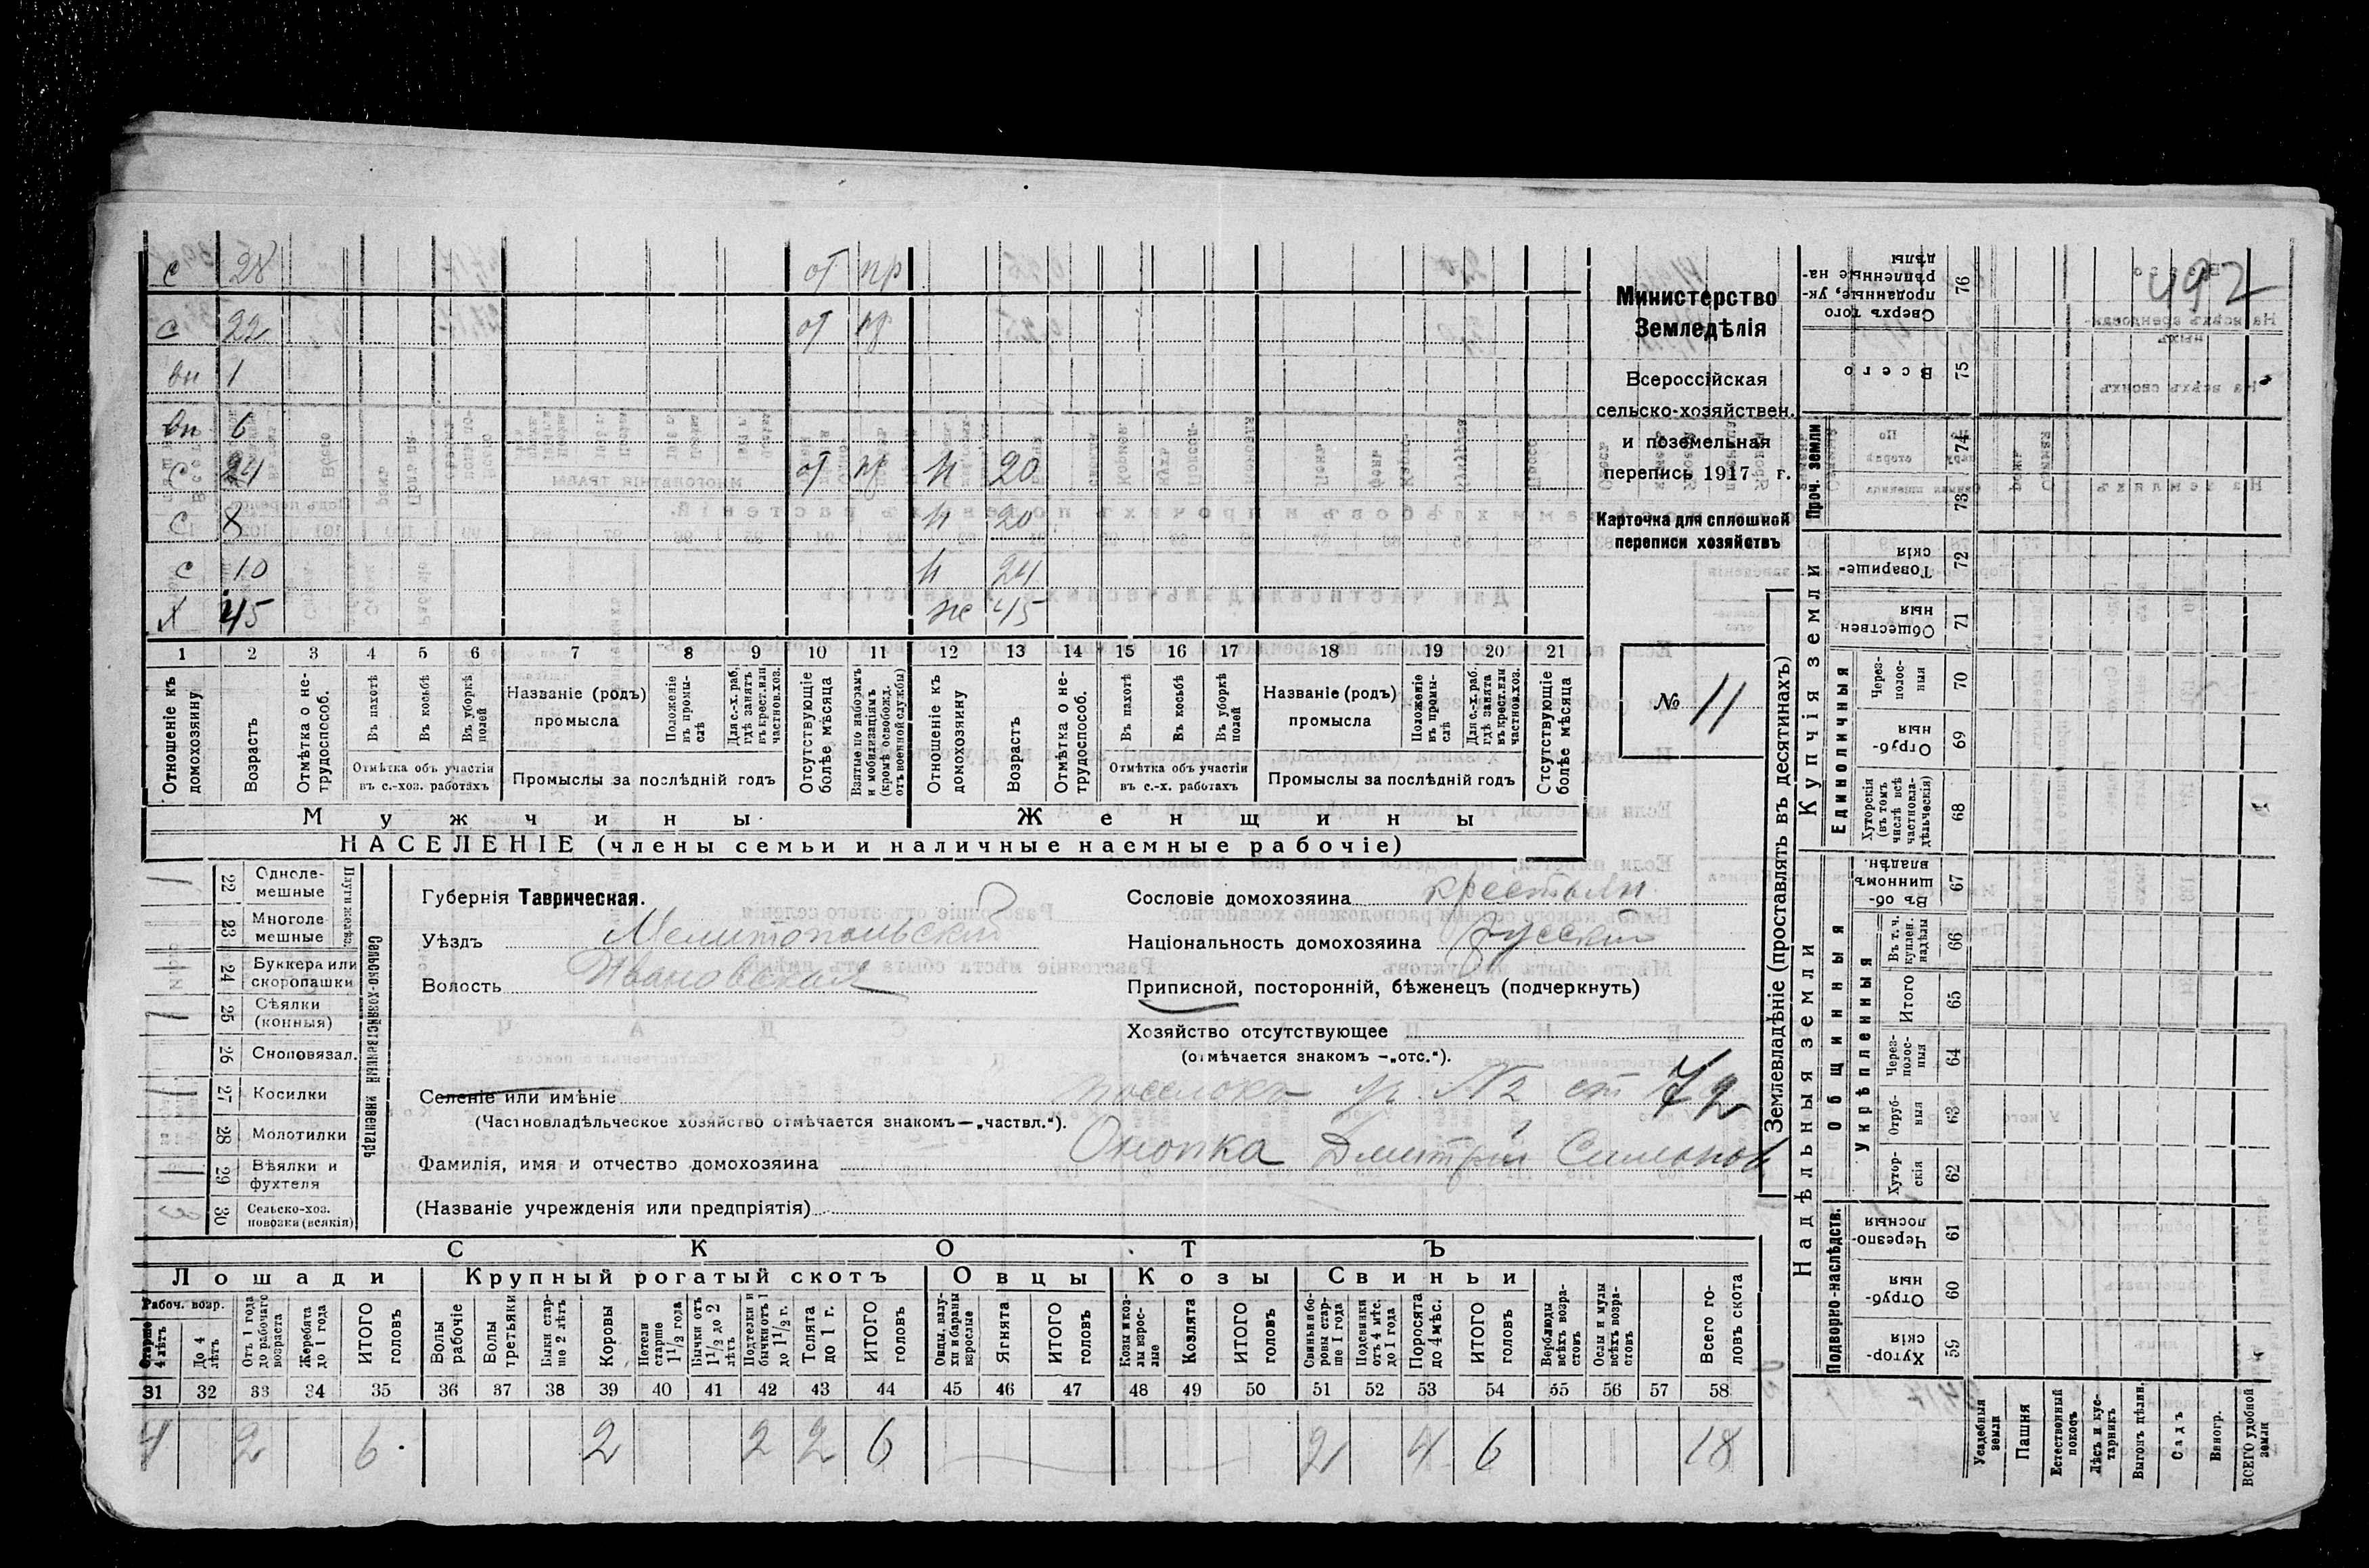 с 28 от пр
с 22 от пр
вн 1
вн 6
с 24 от пр н 20
с 8 н 20
с 10 н 24
х 45 же 45
1 2 3 4 5 6 7 8 9 10 11 12 13 14 15 16 17 18 19 20 21
Отношеніе къ домохозяину
Возрастъ
Отмѣтка о не-трудоспособ.
Въ пахотѣ
Въ косьбѣ
Въ уборкѣ полей
Отмѣтка объ участіи въ с.-хоз. работахъ
Названіе (родъ) промысла
Положеніе въ промы-слѣ
Для с.-х. раб. гдѣ занятъ въ крест. или частнов. хоз.
Промыслы за послѣдній годъ
Отсутствующіе болѣе мѣсяца
Взятые по наборамъ и мобилизаціямъ (кромѣ освобожд. отъ военной службы)
Отношеніе къ домохозяину
Возрастъ
Отмѣтка о не-трудоспособ.
Въ пахотѣ
Въ косьбѣ
Въ уборкѣ полей
Отмѣтка объ участіи въ с.-х. работахъ
Названіе (родъ) промысла
Положеніе въ промы-слѣ
Для с.-х. раб. гдѣ занята въ крест. или частнов. хоз.
Промыслы за послѣдній годъ
Отсутствующіе болѣе мѣсяца
Мужчины
Женщины
НАСЕЛЕНІЕ (члены семьи и наличные наемные рабочіе)
Министерство
Земледѣлія
Всероссійская
сельско-хозяйствен.
и поземельная
перепись 1917 г.
Карточка для сплошной
переписи хозяйствъ
№ 11
492
Сельско-хозяйственный инвентарь
Плуги желѣз.
22 Одноле-мешные 1
23 Многоле-мешные
24 Буккера или скоропашки 1
25 Сѣялки (конныя) 1
26 Сноповязал.
27 Косилки 1
28 Молотилки
29 Вѣялки и фухтеля 1
30 Сельско-хоз. повозки (всякія) 3
Губернія Таврическая.
Уѣздъ Мелитопольскій
Волость Ивановская
Сословіе домохозяина крестьян.
Національность домохозяина Русскій
Приписной, посторонній, бѣженецъ (подчеркнуть)
Хозяйство отсутствующее
(отмѣчается знакомъ —„отс.“).
Селеніе или имѣніе поселокъ уч. №2 ст 72
(Частновладѣльческое хозяйство отмѣчается знакомъ—„частвл.“).
Фамилія, имя и отчество домохозяина Онопка Дмитрій Симонов
(Названіе учрежденія или предпріятія)
СКОТЪ
Лошади Крупный рогатый скотъ Овцы Козы Свиньи
Рабоч. возр.
Старше 4 лѣтъ
До 4 лѣтъ
Отъ 1 года до рабочаго возраста
Жеребята до 1 года
ИТОГО головъ
Волы рабочіе
Волы третьяки
Быки стар-ше 2 лѣтъ
Коровы
Нетели старше 1 1/2 года
Бычки отъ 1 1/2 до 2 лѣтъ
Подтелки и бычки отъ 1 до 1 1/2 г.
Телята до 1 г.
ИТОГО головъ
Овцы, валу-хи и бараны взрослые
Ягнята
ИТОГО головъ
Козы и коз-лы взрос-лые
Козлята
ИТОГО головъ
Свиньи и бо-ровы стар-ше 1 года
Подсвинки отъ 4 мѣс. до 1 года
Поросята до 4 мѣс.
ИТОГО головъ
Верблюды всѣхъ возра-стовъ
Ослы и мулы всѣхъ возра-стовъ
Всего го-ловъ скота
31 32 33 34 35 36 37 38 39 40 41 42 43 44 45 46 47 48 49 50 51 52 53 54 55 56 57 58
4 2 6 2 2 2 6 2 4 6 18
Землевладѣніе (проставлять въ десятинахъ)
Купчія земли
Надѣльныя земли
Проч. земли
Единоличныя
Общинныя
Укрѣпленныя
Подворно-наслѣдств.
Сверхъ того проданные, ук-рѣпленные на-дѣлы 76
Всего 75
74
73
Товарище-скія 72
Обществен ныя 71
Через-полос-ныя 70
Отруб-ныя 69
Хуторскія (въ томъ числѣ всѣ частновла-дѣльческія) 68
Въ об-щинномъ владѣн. 67
Въ т. ч. куплен. надѣлы 66
Итого 65
Через-полос-ныя 64
Отруб-ныя 63
Хутор-скія 62
Черезпо-лосныя 61
Отруб-ныя 60
Хутор-скія 59
Усадебныя земли
Пашня
Естественный покосъ
Лѣсъ и кус-тарникъ
Выгонъ цѣлин.
Садъ
Виногр.
ВСЕГО удобной земли